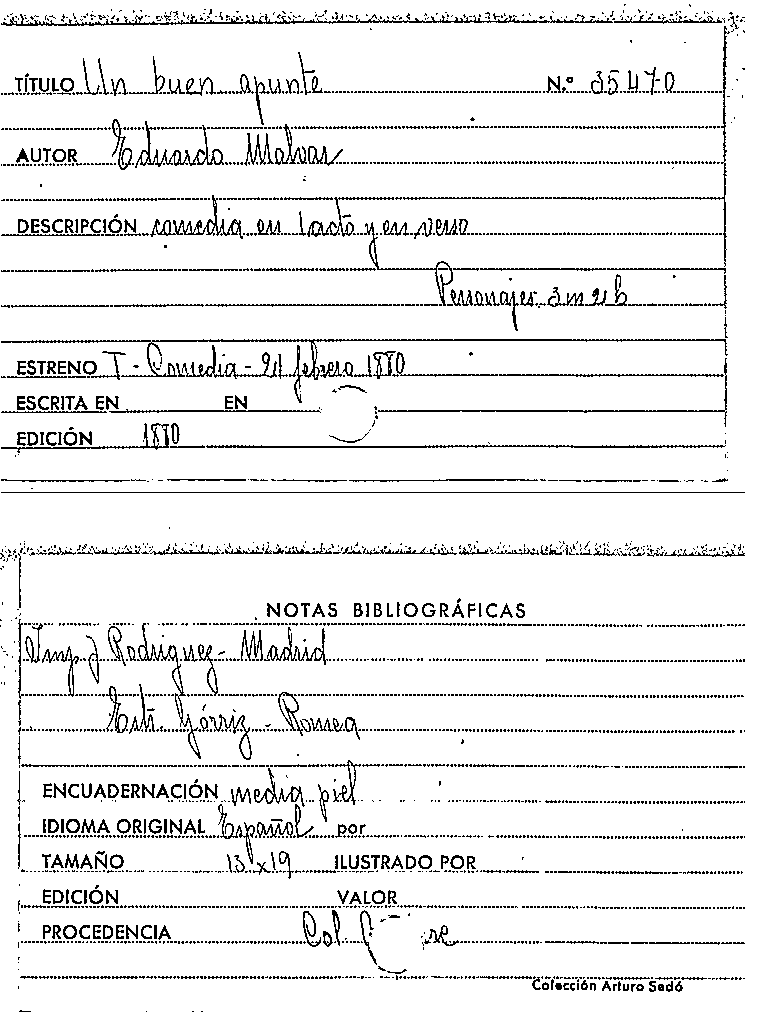 TÍTULO Un buen apunte N.º 35470
AUTOR Eduardo Malvar
DESCRIPCIÓN comedia en 1 acto y en verso
Personajes 3 m 2 h
ESTRENO T - Comedia - 21 febrero 1880
ESCRITA EN EN
EDICIÓN 1880
NOTAS BIBLIOGRÁFICAS
Imp. J Rodriguez - Madrid
Estr. Górriz - Romea
ENCUADERNACIÓN media piel
IDIOMA ORIGINAL Español por
TAMAÑO 13 x 19 ILUSTRADO POR
EDICIÓN VALOR
PROCEDENCIA Col.
Colección Arturo Sedó